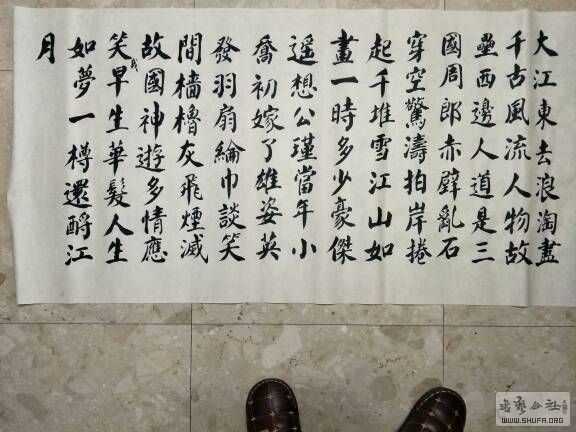 大江東去浪淘盡
千古風流人物故
壘西邊人道是三
國周郎赤壁亂石
穿空驚濤拍岸捲
起千堆雪江山如
畫一時多少豪傑
遥想公瑾當年小
喬初嫁了雄姿英
發羽扇綸巾談笑
間檣櫓灰飛煙滅
故國神遊多情應
笑我早生華髮人生
如夢一樽還酹江
月
WWW.SHUFA.ORG